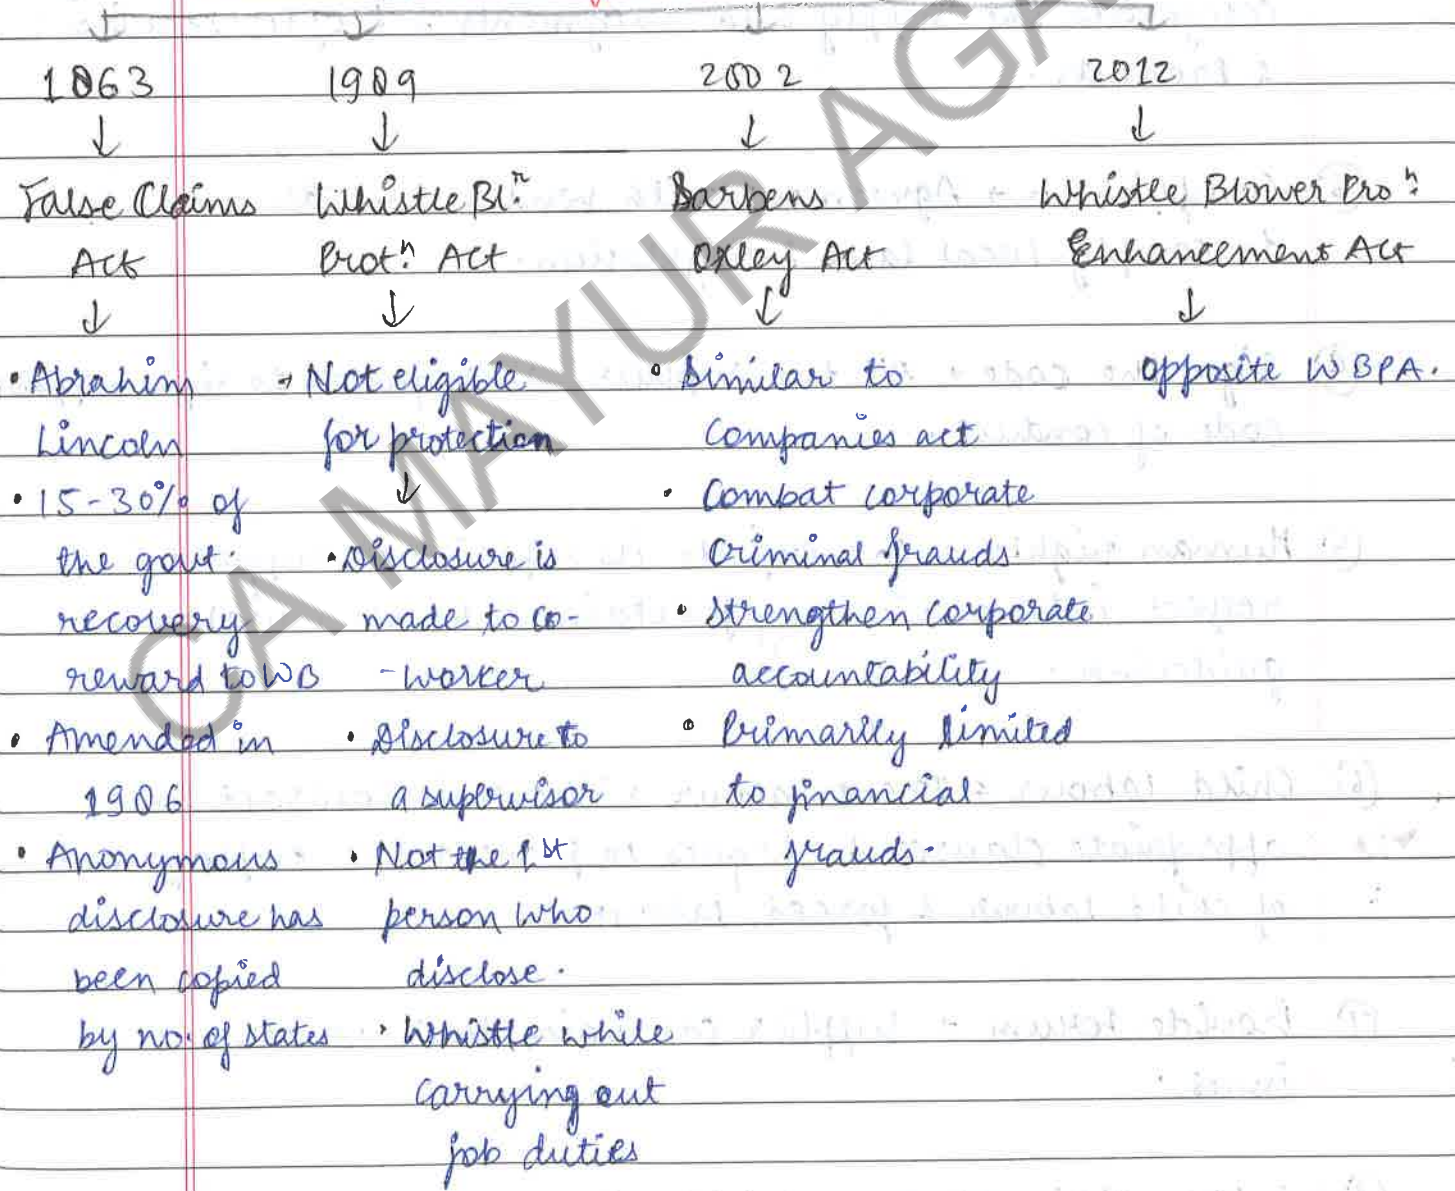 1863
↓
False Claims
Act
↓
• Abrahim
Lincoln
• 15-30% of
the govt.
recovery
reward to WB
• Amended in
1986
• Anonymous
disclosure has
been copied
by no. of states
1989
↓
Whistle Blⁿ.
Protⁿ. Act
↓
→ Not eligible
for protection
↓
• Disclosure is
made to co-
-worker
• Disclosure to
a supervisor
• Not the 1st
person who
disclose.
• Whistle while
carrying out
job duties
2002
↓
Sarbens
Oxley Act
↓
• Similar to
Companies act
• Combat corporate
criminal frauds
• Strengthen corporate
accountability
• Primarily limited
to financial
frauds.
2012
↓
Whistle Blower Proⁿ.
Enhancement Act
↓
opposite WBPA.
CA MAYUR AGA